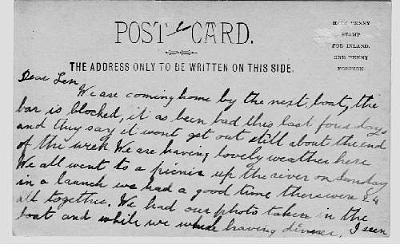 POST CARD.
HALF PENNY
STAMP
FOR INLAND.
ONE PENNY
FOREIGN.
THE ADDRESS ONLY TO BE WRITTEN ON THIS SIDE.
Dear Len,
We are coming home by the next boat, the
bar is blocked, it as been bad this last four days
and they say it wont get out still about the end
of the week We are having lovely weather here
We all went to a picnic up the river on Sunday
in a launch we had a good time there were 24
all together. We had our photo taken in the
boat and while we were having dinner, I seen